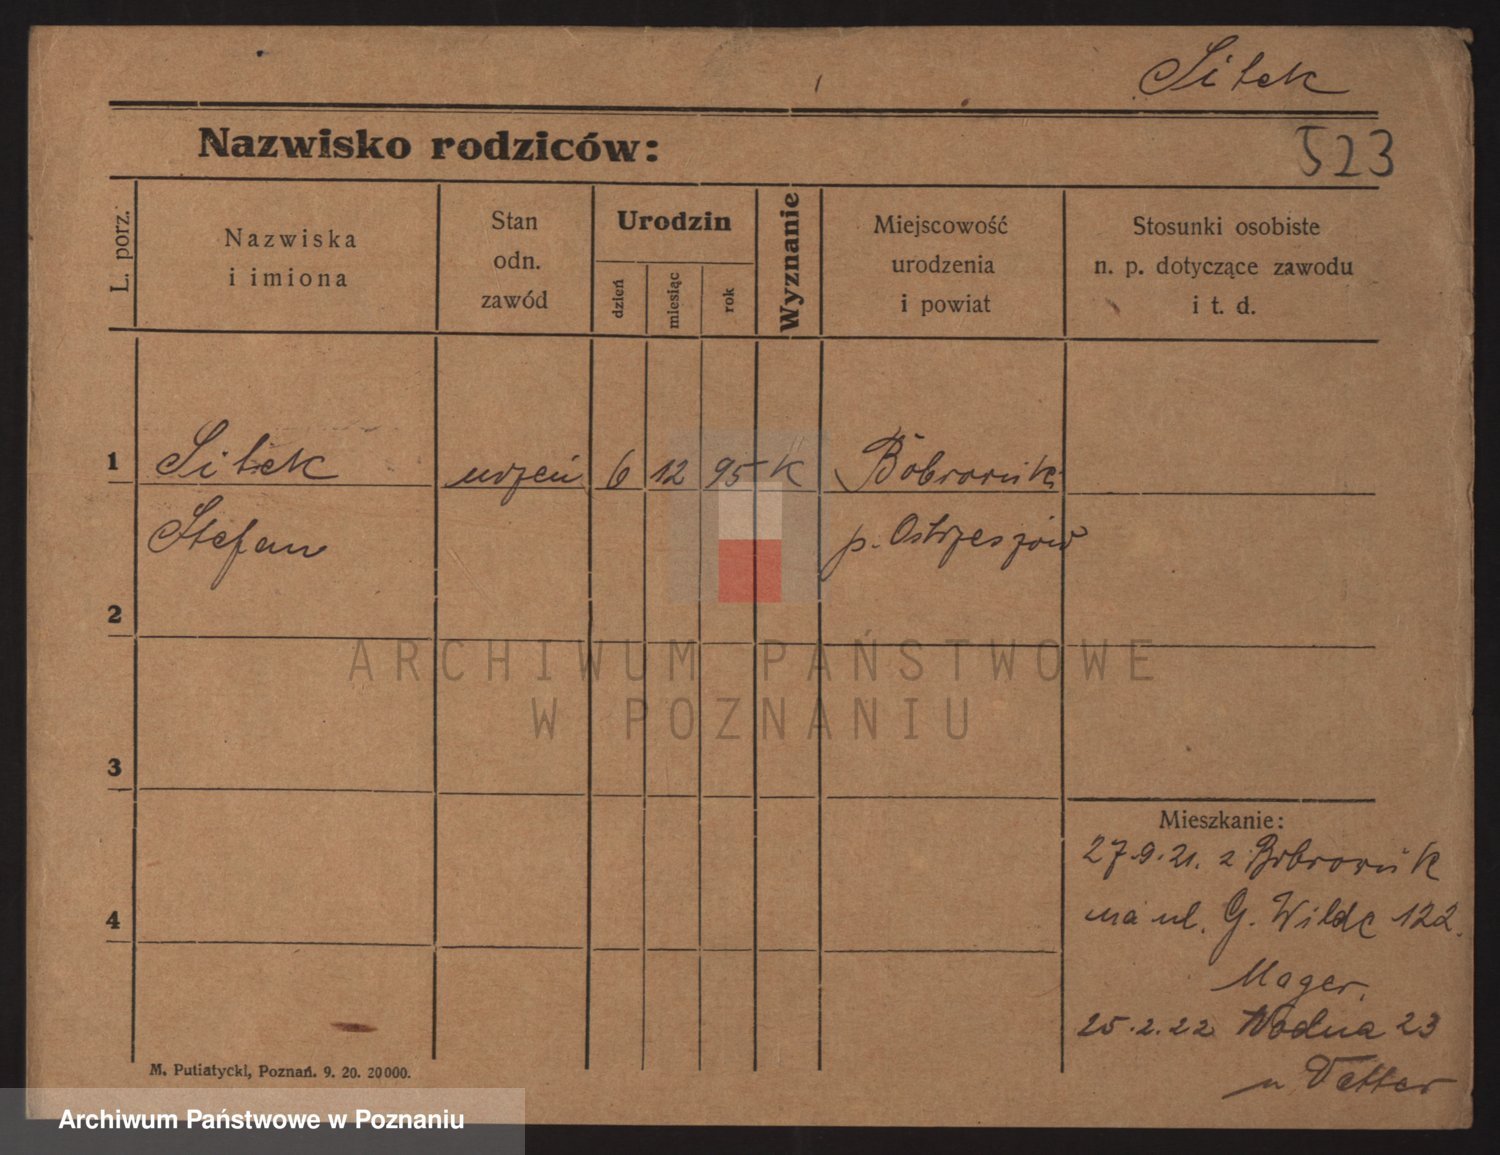 Sitek
Nazwisko rodziców:
523
L. porz.
Nazwiska
i imiona
Stan
odn.
zawód
Urodzin
dzień
miesiąc
rok
Wyznanie
Miejscowość
urodzenia
i powiat
Stosunki osobiste
n. p. dotyczące zawodu
i t. d.
1
Sitek
uczeń 6 12 95 k Bobrowniki
Stefan
p. Ostrzeszów
2
ARCHIWUM PAŃSTWOWE
W POZNANIU
3
Mieszkanie:
27.9.21. z Bobrownik
na ul. G. Wilde 122.
4
Mager.
25.2.22 Wodna 23
u Vetter
M. Putiatycki, Poznań. 9. 20. 20000.
Archiwum Państwowe w Poznaniu